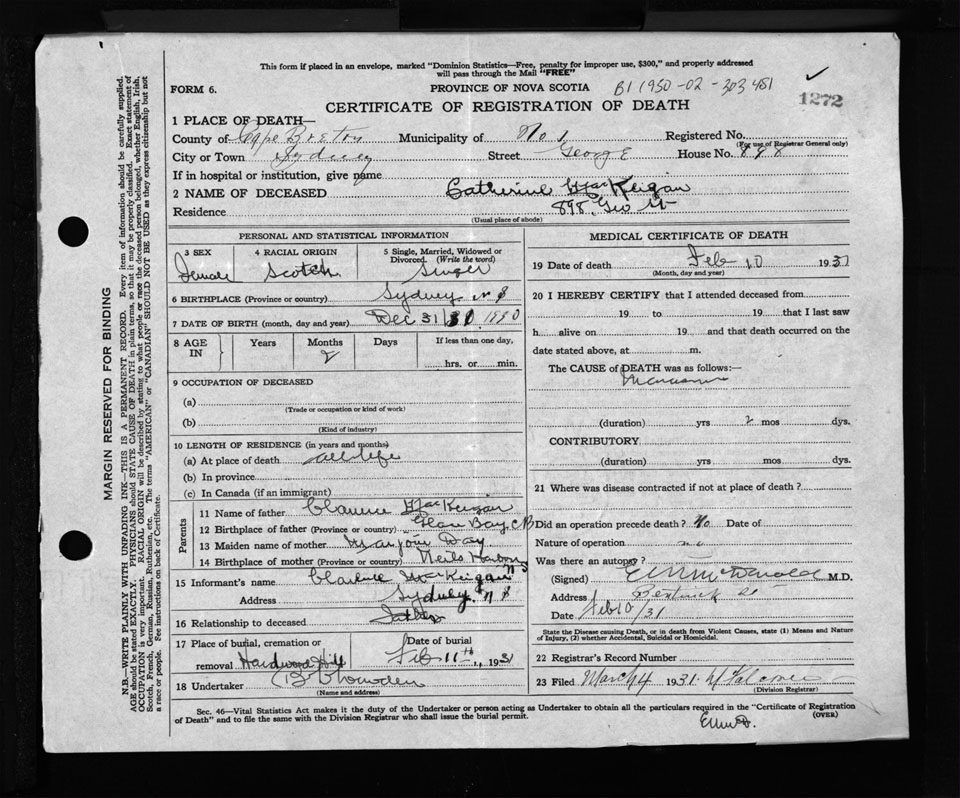 This form if placed in an envelope, marked "Dominion Statistics—Free, penalty for improper use, $300," and properly addressed
will pass through the Mail "FREE"
FORM 6. PROVINCE OF NOVA SCOTIA B1 1930-02-303481
1272
CERTIFICATE OF REGISTRATION OF DEATH
1 PLACE OF DEATH—
County of Cape Breton Municipality of No 1 Registered No.
(For use of Registrar General only)
City or Town Sydney Street George House No. 898
If in hospital or institution, give name
2 NAME OF DECEASED Catherine MacKeigan
Residence 898 Geo St
(Usual place of abode)
PERSONAL AND STATISTICAL INFORMATION
3 SEX 4 RACIAL ORIGIN 5 Single, Married, Widowed or Divorced. (Write the word)
Female Scotch Single
6 BIRTHPLACE (Province or country) Sydney N S
7 DATE OF BIRTH (month, day and year) Dec 31 1930
8 AGE IN Years Months Days If less than one day,
2 hrs. or min.
9 OCCUPATION OF DECEASED
(a)
(Trade or occupation or kind of work)
(b)
(Kind of industry)
10 LENGTH OF RESIDENCE (in years and months)
(a) At place of death all life
(b) In province
(c) In Canada (if an immigrant)
Parents
11 Name of father Clarence MacKeigan
12 Birthplace of father (Province or country) Glace Bay, CB
13 Maiden name of mother Day
14 Birthplace of mother (Province or country) Neils Harbour NS
15 Informant's name Clarence MacKeigan
Address Sydney, N S
16 Relationship to deceased Father
17 Place of burial, cremation or removal Hardwood Hill Date of burial Feb 11th, 1931
18 Undertaker
(Name and address)
MEDICAL CERTIFICATE OF DEATH
19 Date of death Feb 10 1931
(Month, day and year)
20 I HEREBY CERTIFY that I attended deceased from
19 to 19 that I last saw
h alive on 19 and that death occurred on
date stated above, at m.
The CAUSE of DEATH was as follows:—
(duration) yrs 2 mos dys.
CONTRIBUTORY
(duration) yrs mos dys.
21 Where was disease contracted if not at place of death?
Did an operation precede death? No Date of
Nature of operation no
Was there an autopsy?
(Signed) M.D.
Address
Date Feb 10/31
State the Disease causing Death, or in death from Violent Causes, state (1) Means and Nature
of Injury, (2) whether Accidental, Suicidal or Homicidal.
22 Registrar's Record Number
23 Filed March 4 1931
(Division Registrar)
Sec. 46—Vital Statistics Act makes it the duty of the Undertaker or person acting as Undertaker to obtain all the particulars required in the "Certificate of Registration
of Death" and to file the same with the Division Registrar who shall issue the burial permit. (OVER)
MARGIN RESERVED FOR BINDING
N.B.—WRITE PLAINLY WITH UNFADING INK—THIS IS A PERMANENT RECORD. Every item of information should be carefully supplied.
AGE should be stated EXACTLY. PHYSICIANS should STATE CAUSE OF DEATH in plain terms, so that it may be properly classified. Exact statement of
OCCUPATION is very important. RACIAL ORIGIN will be described by stating to what people or race the deceased person belonged, whether English, Irish,
Scotch, French, German, Russian, Ruthenian, etc. The terms "AMERICAN" or "CANADIAN" SHOULD NOT BE USED as they express citizenship but not
a race or people. See instructions on back of Certificate.